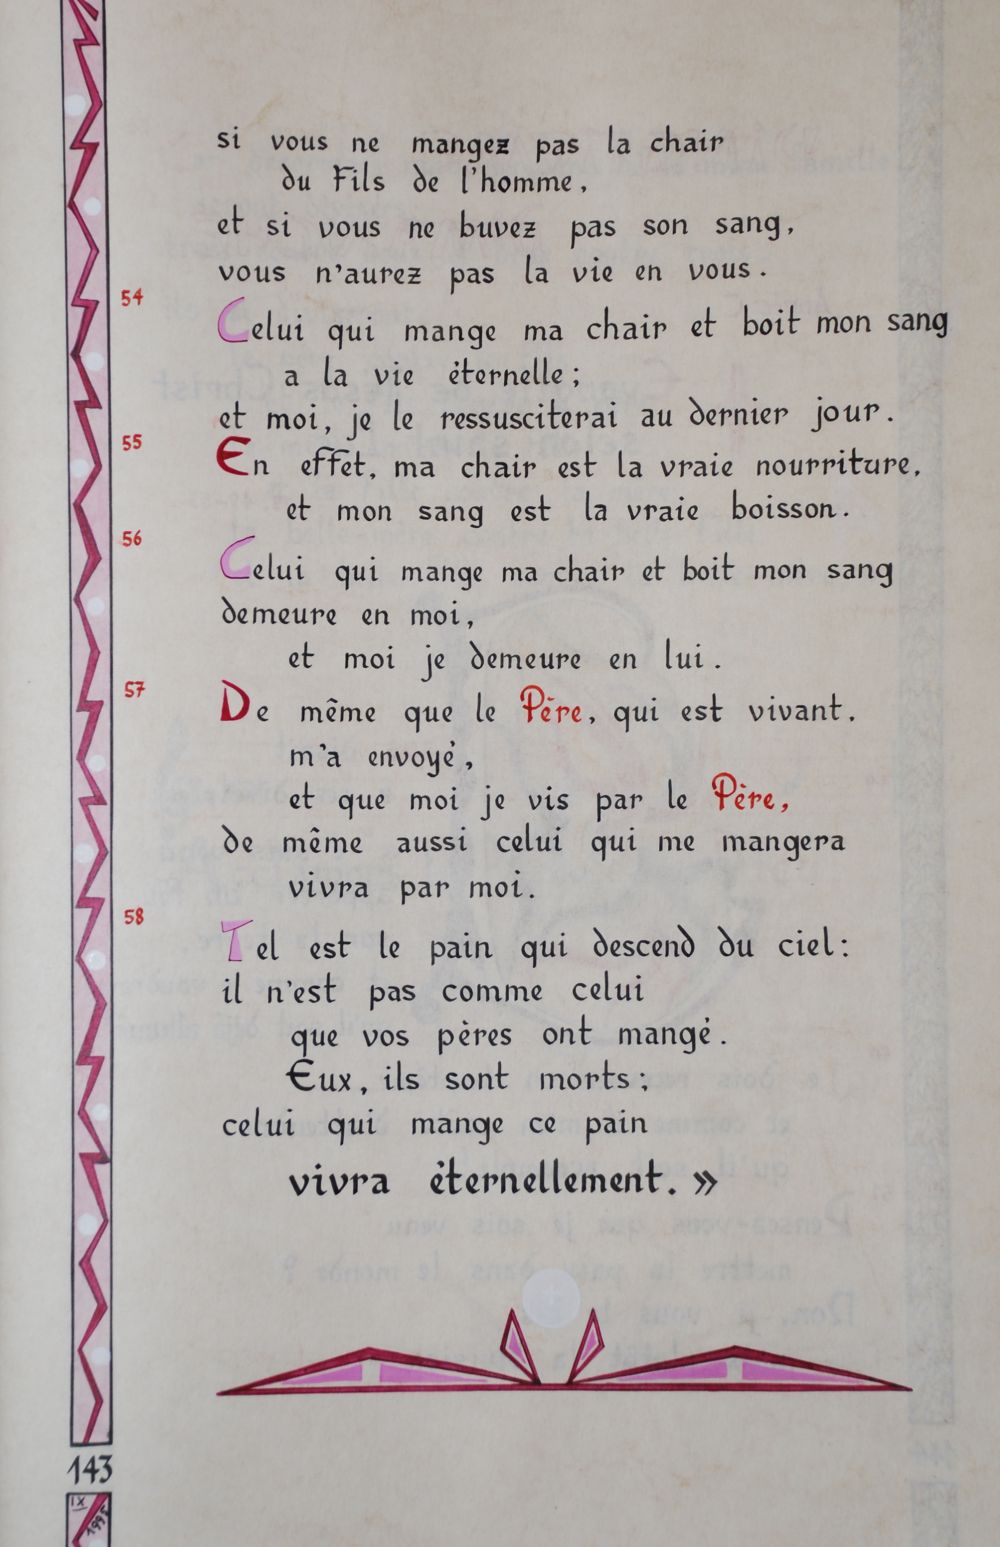 si vous ne mangez pas la chair
du Fils de l'homme,
et si vous ne buvez pas son sang,
vous n'aurez pas la vie en vous.
54
Celui qui mange ma chair et boit mon sang
a la vie éternelle ;
et moi, je le ressusciterai au dernier jour.
55
En effet, ma chair est la vraie nourriture,
et mon sang est la vraie boisson.
56
Celui qui mange ma chair et boit mon sang
demeure en moi,
et moi je demeure en lui.
57
De même que le Père, qui est vivant,
m'a envoyé,
et que moi je vis par le Père,
de même aussi celui qui me mangera
vivra par moi.
58
Tel est le pain qui descend du ciel :
il n'est pas comme celui
que vos pères ont mangé.
Eux, ils sont morts ;
celui qui mange ce pain
vivra éternellement. »
143
IX
1995